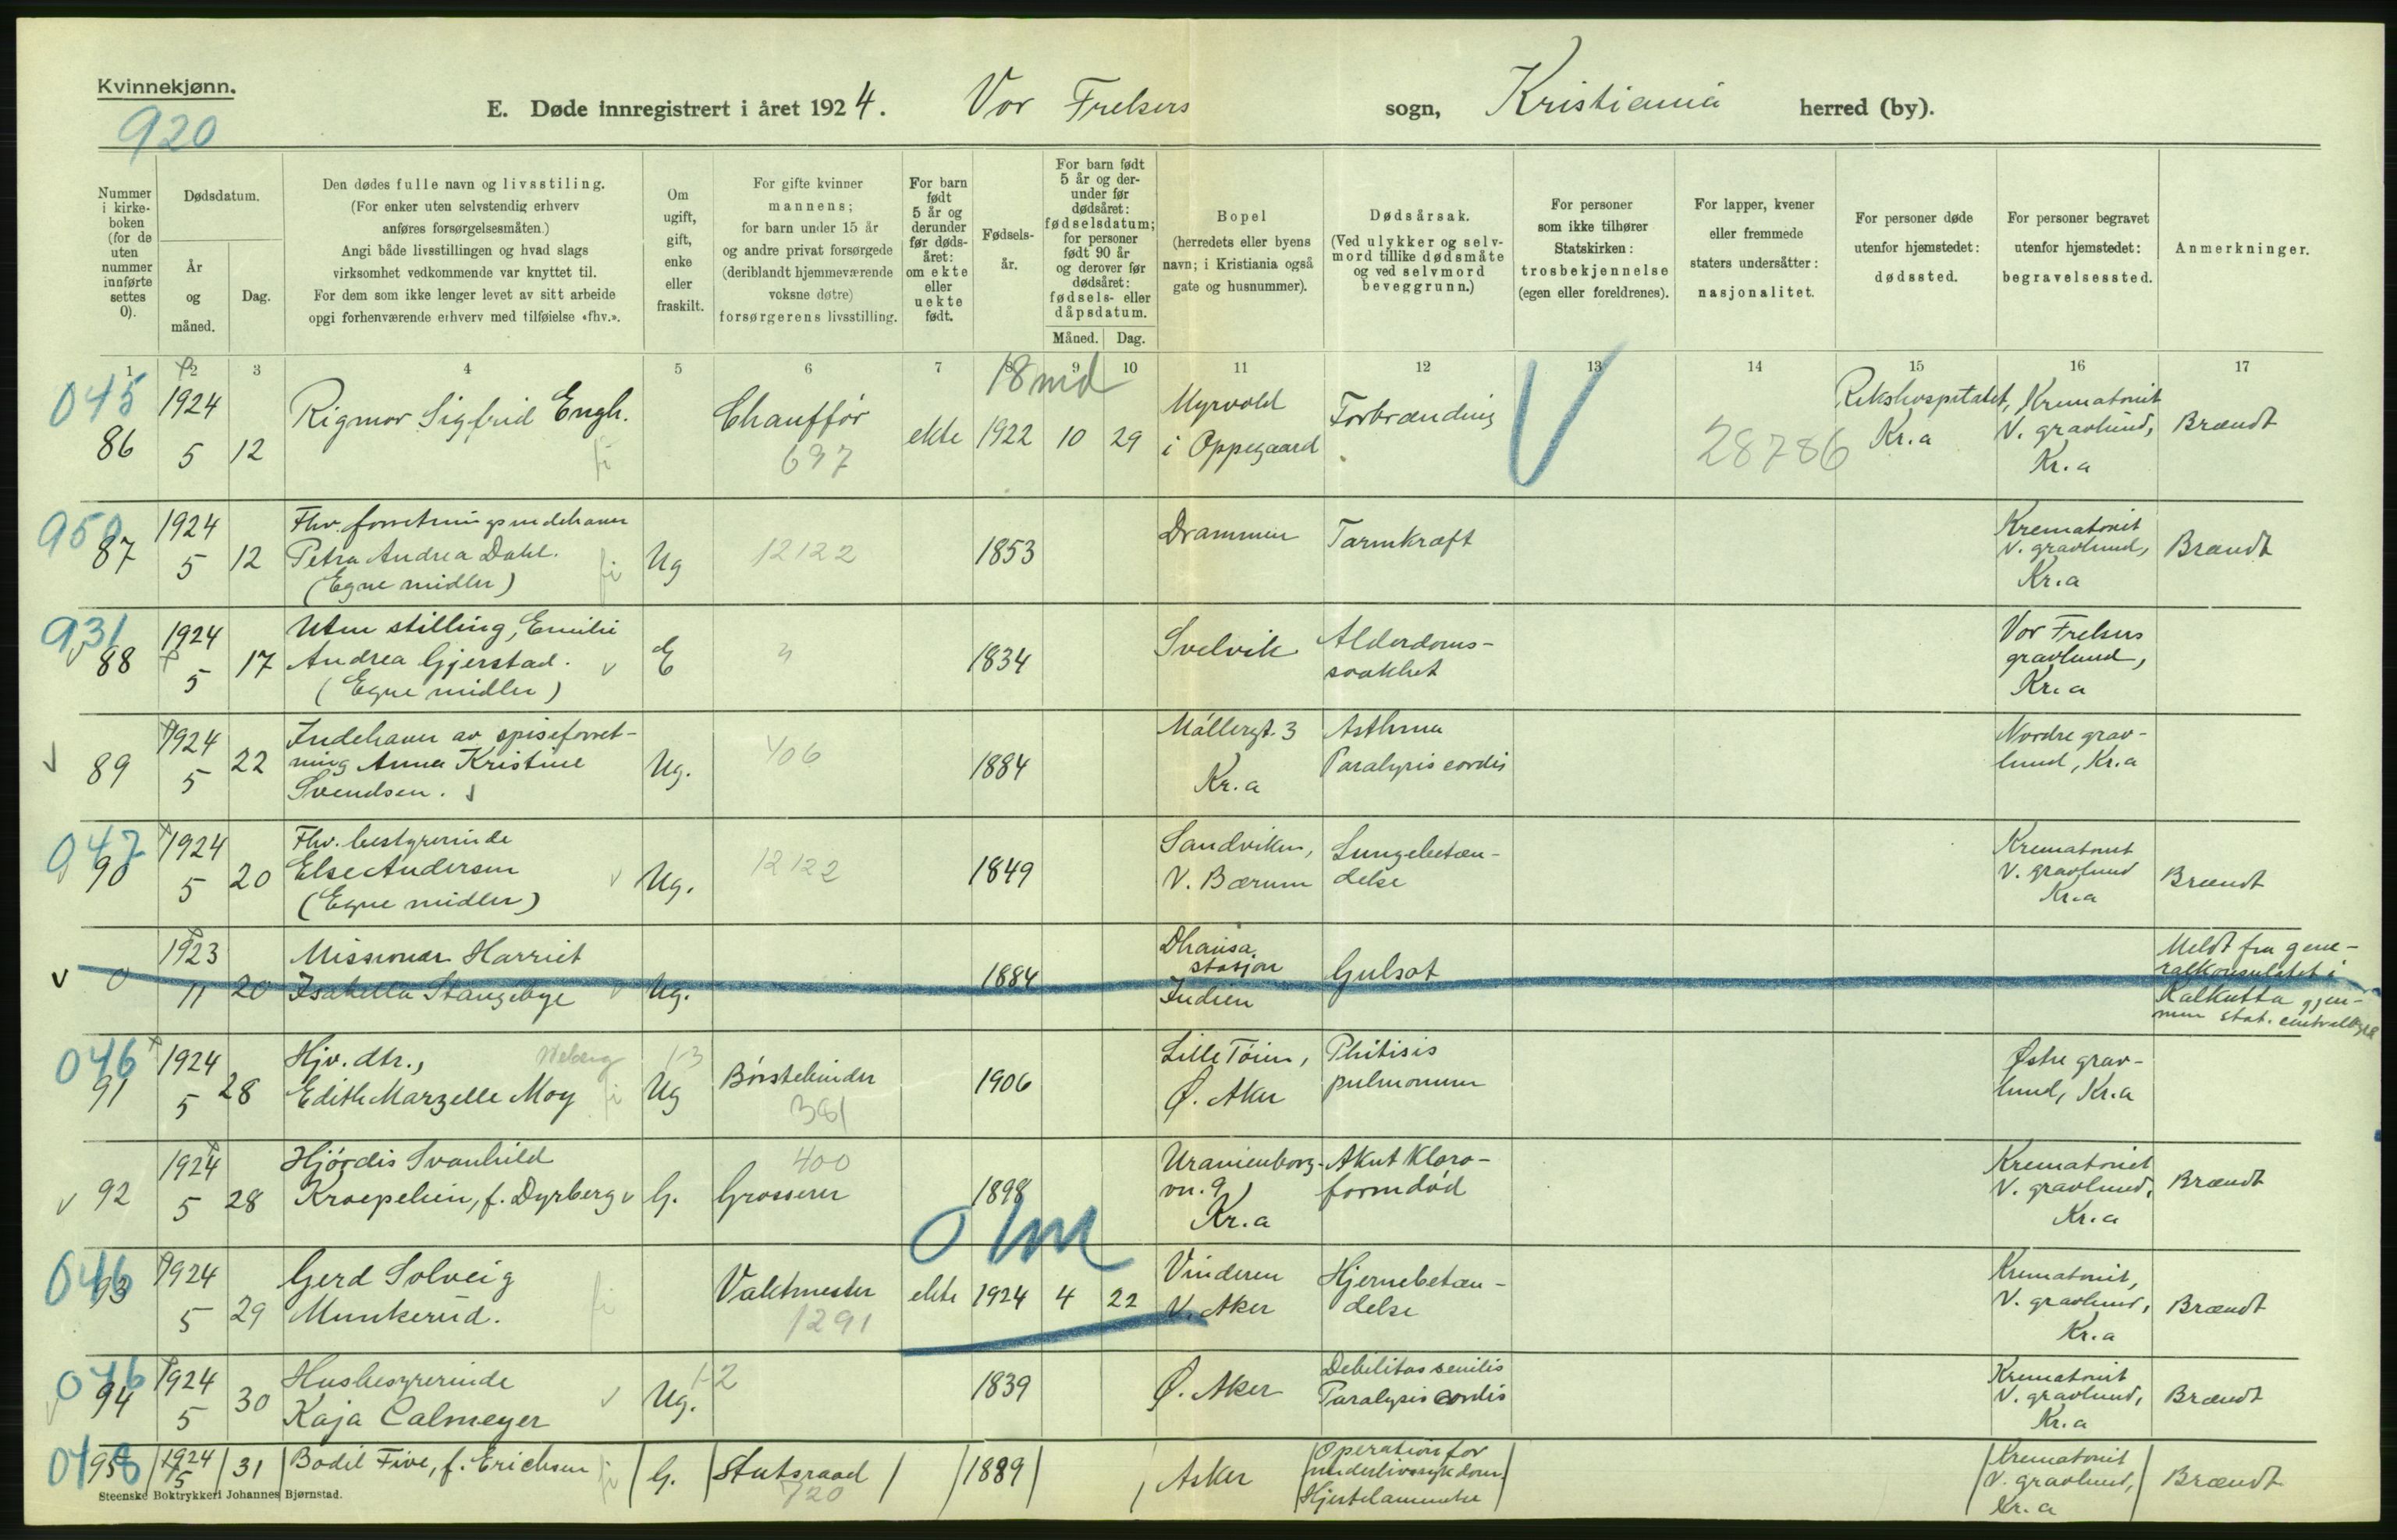 Kvinnekjønn.
920
E. Døde innregistrert i året 1924. Vor Frelsers sogn, Kristiania herred (by).
Nummer i kirkeboken (for de uten nummer innførte settes 0).
Dødsdatum.
År og måned.
Dag.
Den dødes fulle navn og livsstiling.
(For enker uten selvstendig erhverv
anføres forsørgelsesmåten.)
Angi både livsstillingen og hvad slags
virksomhet vedkommende var knyttet til.
For dem som ikke lenger levet av sitt arbeide
opgi forhenværende erhverv med tilføielse «fhv.».
Om ugift, gift, enke eller fraskilt.
For gifte kvinner
mannens;
for barn under 15 år
og andre privat forsørgede
(deriblandt hjemmeværende
voksne døtre)
forsørgerens livsstilling.
For barn født 5 år og derunder før dødsåret: om ekte eller uekte født.
Fødselsår.
For barn født 5 år og derunder før dødsåret: fødselsdatum; for personer født 90 år og derover før dødsåret: fødsels- eller dåpsdatum.
Måned. Dag.
Bopel
(herredets eller byens
navn; i Kristiania også
gate og husnummer).
Dødsårsak.
(Ved ulykker og selvmord tillike dødsmåte
og ved selvmord
beveggrunn.)
For personer
som ikke tilhører
Statskirken:
trosbekjennelse
(egen eller foreldrenes).
For lapper, kvener
eller fremmede
staters undersåtter:
nasjonalitet.
For personer døde
utenfor hjemstedet:
dødssted.
For personer begravet
utenfor hjemstedet:
begravelsessted.
Anmerkninger.
1 2 3 4 5 6 7 8 9 10 11 12 13 14 15 16 17
045 86 1924 5 12 Rigmor Sigfrid Engh. fi Chauffør 697 ekte 18 md 1922 10 29 Myrvold i Oppegaard Forbrænding V 28786 Rikshospitalet, Kr.a Krematoriet V. gravlund, Kr.a Brændt
950 87 1924 5 12 Fhv. forretningsindehaver
Petra Andrea Dahl.
(Egne midler) fi Ug 12122 1853 Drammen Tarmkræft Krematoriet V. gravlund, Kr.a Brændt
931 88 1924 5 17 Uten stilling, Emilie
Andrea Gjerstad.
(Egne midler) E 1834 Svelvik Alderdoms-
svakhet Vor Frelsers gravlund, Kr.a
89 1924 5 22 Indehaver av spiseforret-
ning Anna Kristine
Svendsen. Ug. 406 1884 Møllergt. 3 Kr.a Asthma
Paralysis cordis Nordre grav-
lund, Kr.a
047 90 1924 5 20 Fhv. bestyrerinde
Else Andersen
(Egne midler) Ug. 12122 1849 Sandviken, V. Bærum Lungebetæn-
delse Krematoriet V. gravlund Kr.a Brændt
0 1923 11 20 Missionær Harriet
Isabella Stangebye Ug. 1884 Dhausa stasjon Indien Gulsot Meldt fra gene-
ralkonsulatet i
Kalkutta gjen-
nem stat. centralbyrå
046 91 1924 5 28 Hjv. dtr.,
Edith Marzelle Moy fi Ug 1-3 Børstebinder 381 1906 Lille Tøien, Ø. Aker Phitisis
pulmonum Østre grav-
lund, Kr.a
92 1924 5 28 Hjørdis Svanhild
Kraepelien, f. Dyrberg G. 400 Grosserer 1898 Uranienborg-
vn. 9, Kr.a Akut kloro-
formdød Krematoriet V. gravlund, Kr.a Brændt
046 93 1924 5 29 Gerd Solveig
Munkerud. fi Vaktmester 1291 ekte 0 1m 1924 4 22 Vinderen V. Aker Hjernebetæn-
delse Krematoriet, V. gravlund, Kr.a Brændt
046 94 1924 5 30 Husbestyrerinde
Kaja Calmeyer Ug. 1-2 1839 Ø. Aker Debilitas senilis
Paralysis cordis Krematoriet V. gravlund, Kr.a Brændt
048 95 1924 5 31 Bodil Five, f. Erichsen fi G. Statsraad 720 1889 Asker Operation for
underlivssykdom,
Hjertelammelse Krematoriet V. gravlund, Kr.a Brændt
Steenske Boktrykkeri Johannes Bjørnstad.